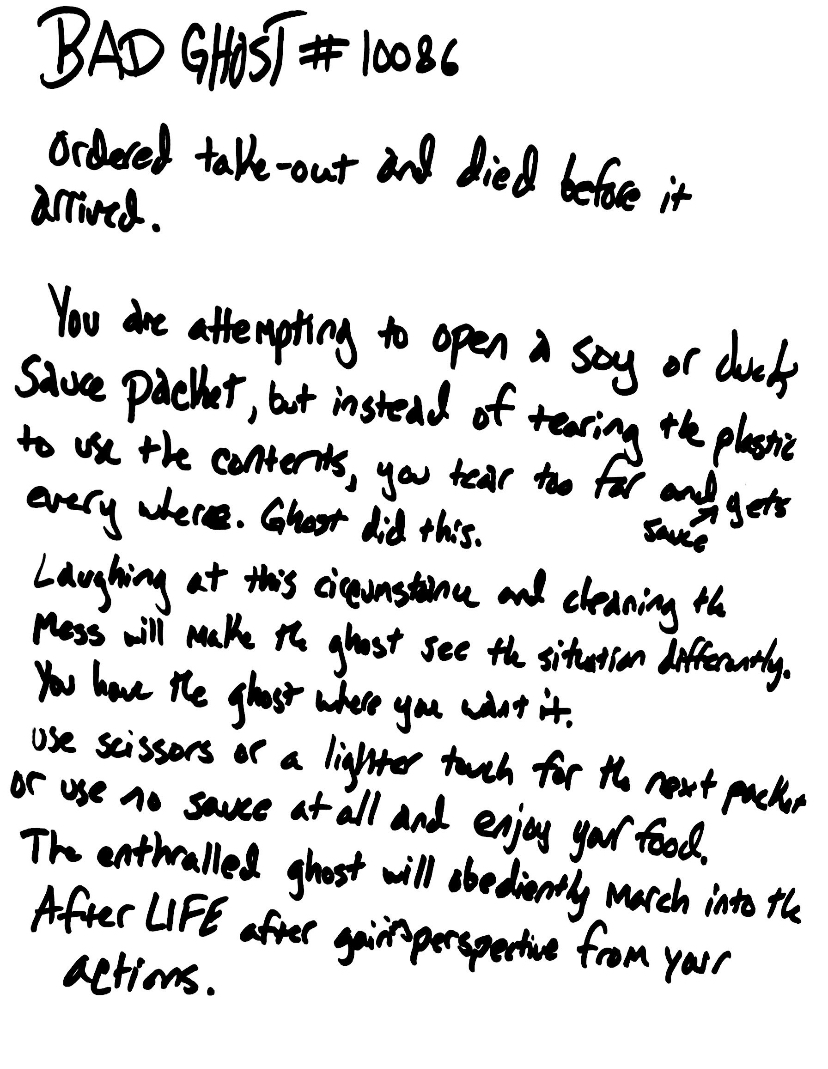 BAD GHOST #10086
Ordered take-out and died before it
arrived.
You are attempting to open a soy or duck
sauce packet, but instead of tearing the plastic
to use the contents, you tear too far and gets
sauce
every where. Ghost did this.
Laughing at this circumstance and cleaning the
mess will make the ghost see the situation differently.
You have the ghost where you want it.
use scissors or a lighter touch for the next packet
or use no sauce at all and enjoy your food.
The enthralled ghost will obediently march into the
After LIFE after gaining perspective from your
actions.